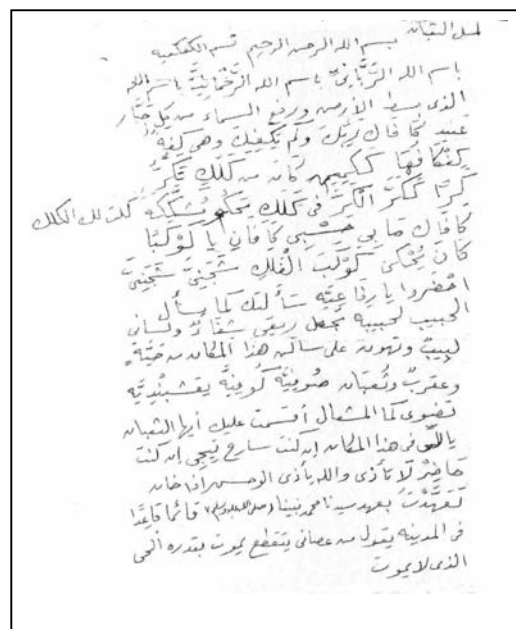 لمسك الثعبان
بسم الله الرحمن الرحيم قسم الكفكفيه
باسم الله الرَّبَّانِىِّ باسم الله الرَّحْمَانِيَّة باسم الله
الذى بسط الأرض ورفع السماء من كل جبّار
عنيد كفاك ربّك وكم يكفيك وهى كفه
كِفْكَافُهَا كَكَمِينٍ كان من كَلَكٍ تَكِرُّ
كَرًّا كَكَرِّ الْكَرِّ فى كَلَكٍ تحكى مُشَكْشَكَه كلت لك الكلك
كافاك مابى حَسْبِى كافان يا كَوْكَبًا
كان يُحْكى كَوْكَبَ الْفَلَكِ شَجِنِيَّ شَجِنِيَّ
احضروا يا رفاعيّه سألتك كما يسأل
الحبيب لحبيبه تجعل ريقى شفاءٌ ولسانى
لبيبٌ وتهون على ساكن هذا المكان من حيّةٍ
وعقربٌ وثُعبان صُوفِيَّه كُوفِيَّه نقشبنديّه
تضوى كما المشعال أقسمت عليك أيها الثعبان
يا فى هذا المكان إن كنت سارح تيجى إن كنت
حاضِرٌ لا تأذى والله يأذى الوحس إذا خان
تَعَهَّدْتَ بعهد سيدنا محمد نبينا (صلى الله عليه وسلم) قائماً قاعداً
فى المدينه يقول من عصانى يتقطع يموت بقدره الحى
الذى لا يموت